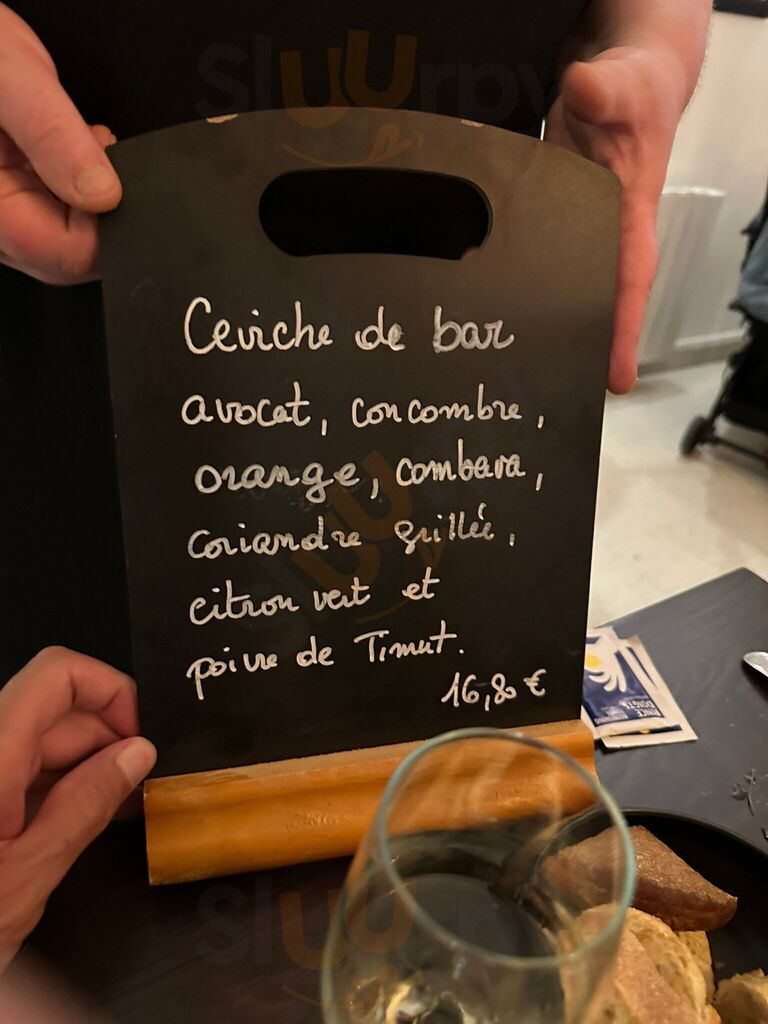 Sluurpy
Ceviche de bar
avocat, concombre,
orange, combava,
coriandre grillée,
citron vert et
poivre de Timut.
16,80 €
RINCE
DOIGTS
Sluurpy